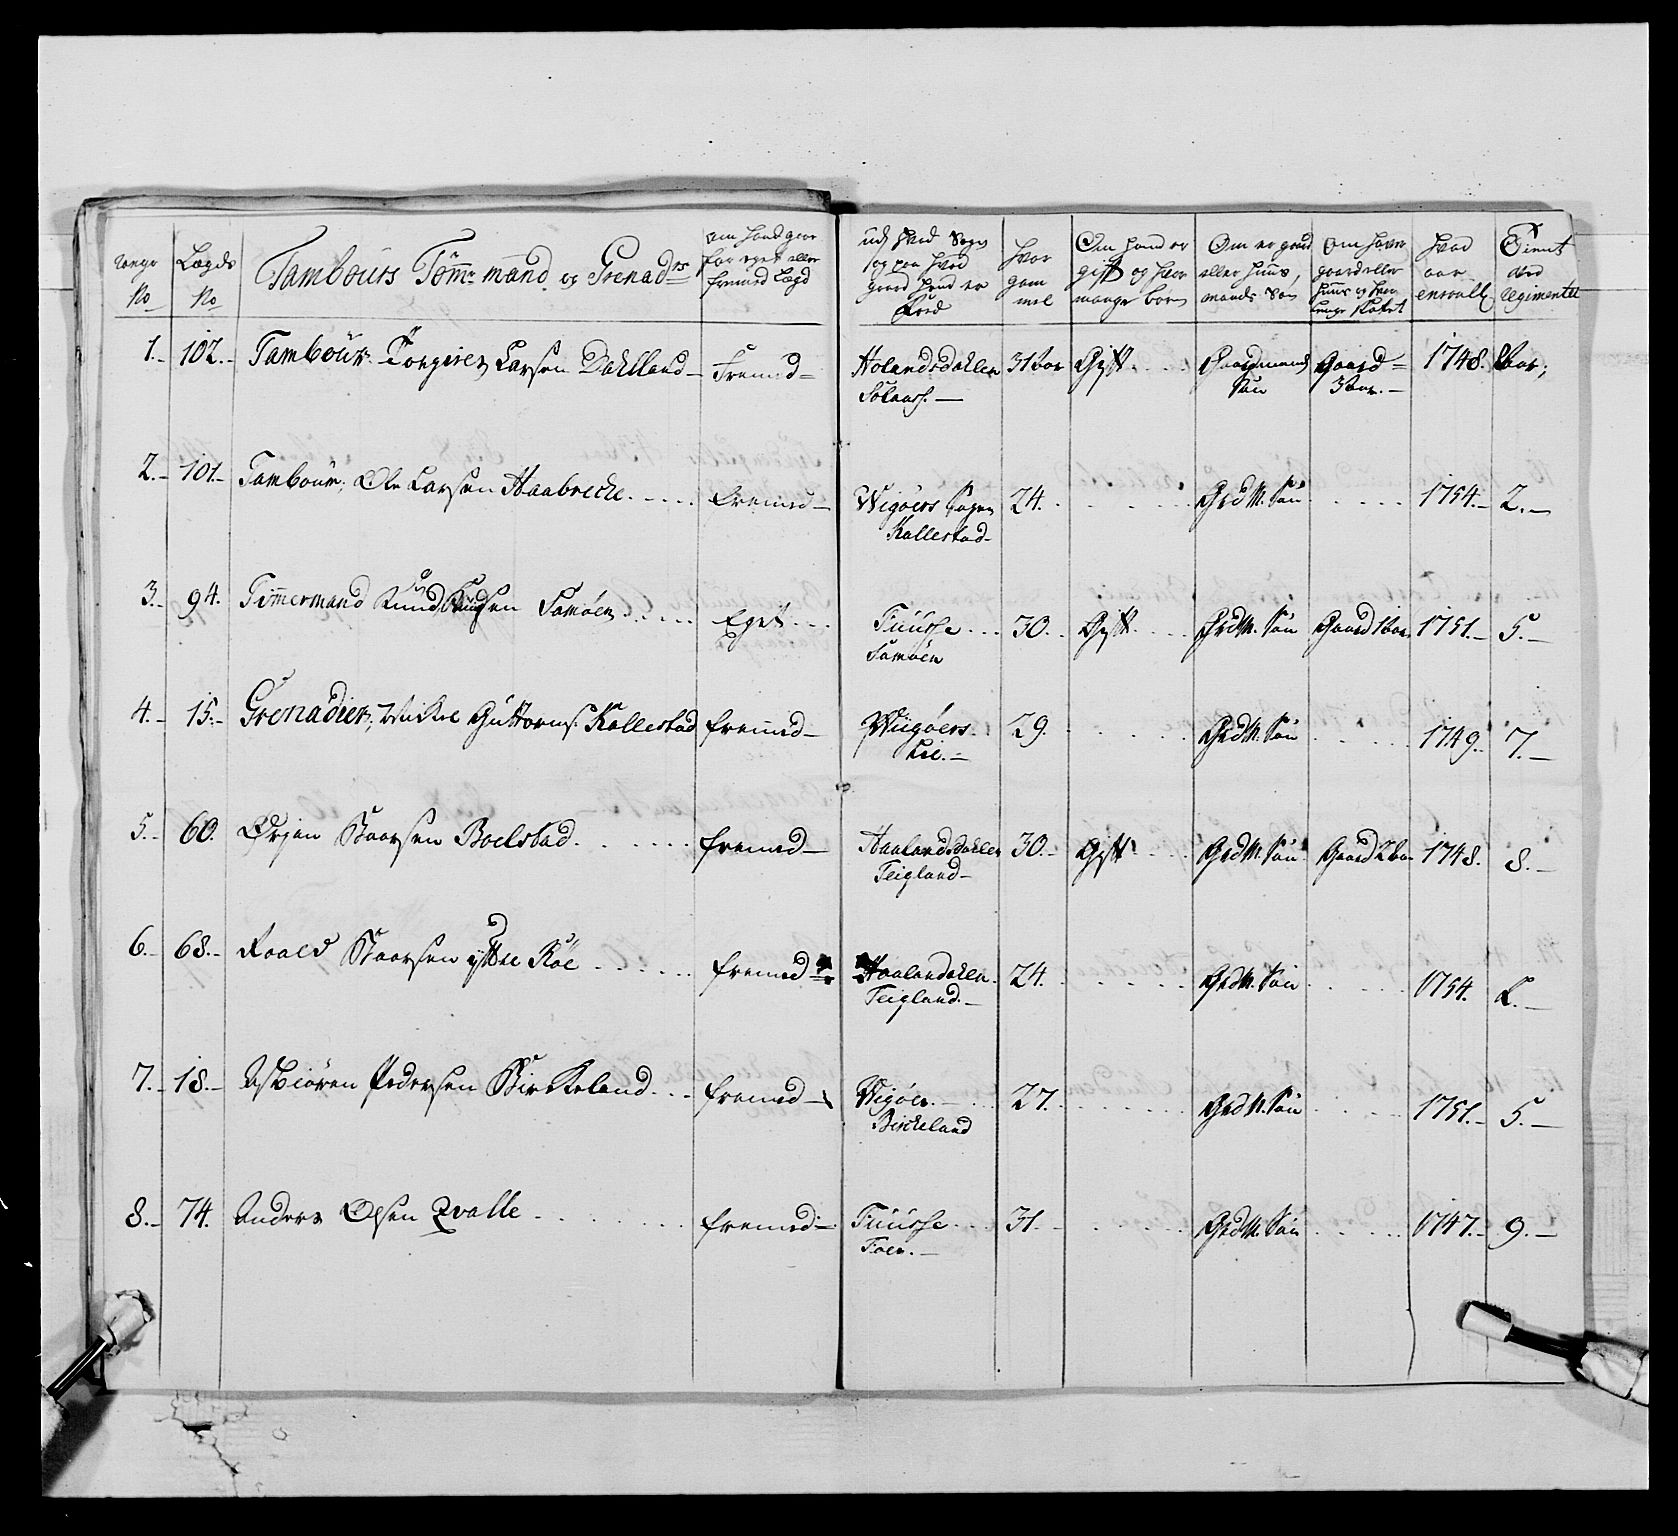 No
Lægds No
Tambours Tøm̄mand og Grenad
om hand giør for eget eller fremed Lægd
ud hvad Sogn og paa hvad gaard hand er fød
hvor gammel
Om hand er gift og hvor mange børn
Om er gaard eller huus mands Søn
Om haver gaard eller huus og hvor længe
hvad aar enroll
Tient ved Regimentet
1.- 102.- Tambour Torgier Larsen Dahlland Fremd= Holandsdahlen 31 aar Gift Gaardmands Søn Gaard= 3 aar.- 1748. 8 aar;
2.- 101.- Tambour, Ole Larsen Aabrecke fremed- Wigøers Sogn Kallestad- 24. Grd M. Søn 1754.- 2.-
3.- 94. Timmermand Knud Knudsen Samøen Eget Fuusse Samøen 30. Gift Grd M. Søn Gaard 1 aar 1751.- 5.-
4.- 15.- Grenadier, Mickel Guttorms. Kallestad fremed- Wigøers Lie.- 29. Grd M. Søn 1749. 7.-
5.- 60. Ørjan Boelstad fremed- Haalandsdahlen Teigland- 30.- Gift Grd M. Søn Gaard 2 aar 1748. 8.-
6.- 68.- Roald yttre Røe fremed Haalandahlen Teigland.- 24. Grd M. Søn 1754. 2.-
7.- 18.- Asbiøren Pedersen Birckeland fremed- Wigøer Birckeland 27. Grd M. Søn 1751.- 5.-
8.- 74. Anders Olsen Qvalle fremed- Fuusse 31. Grd M. Søn 1747.- 9.-